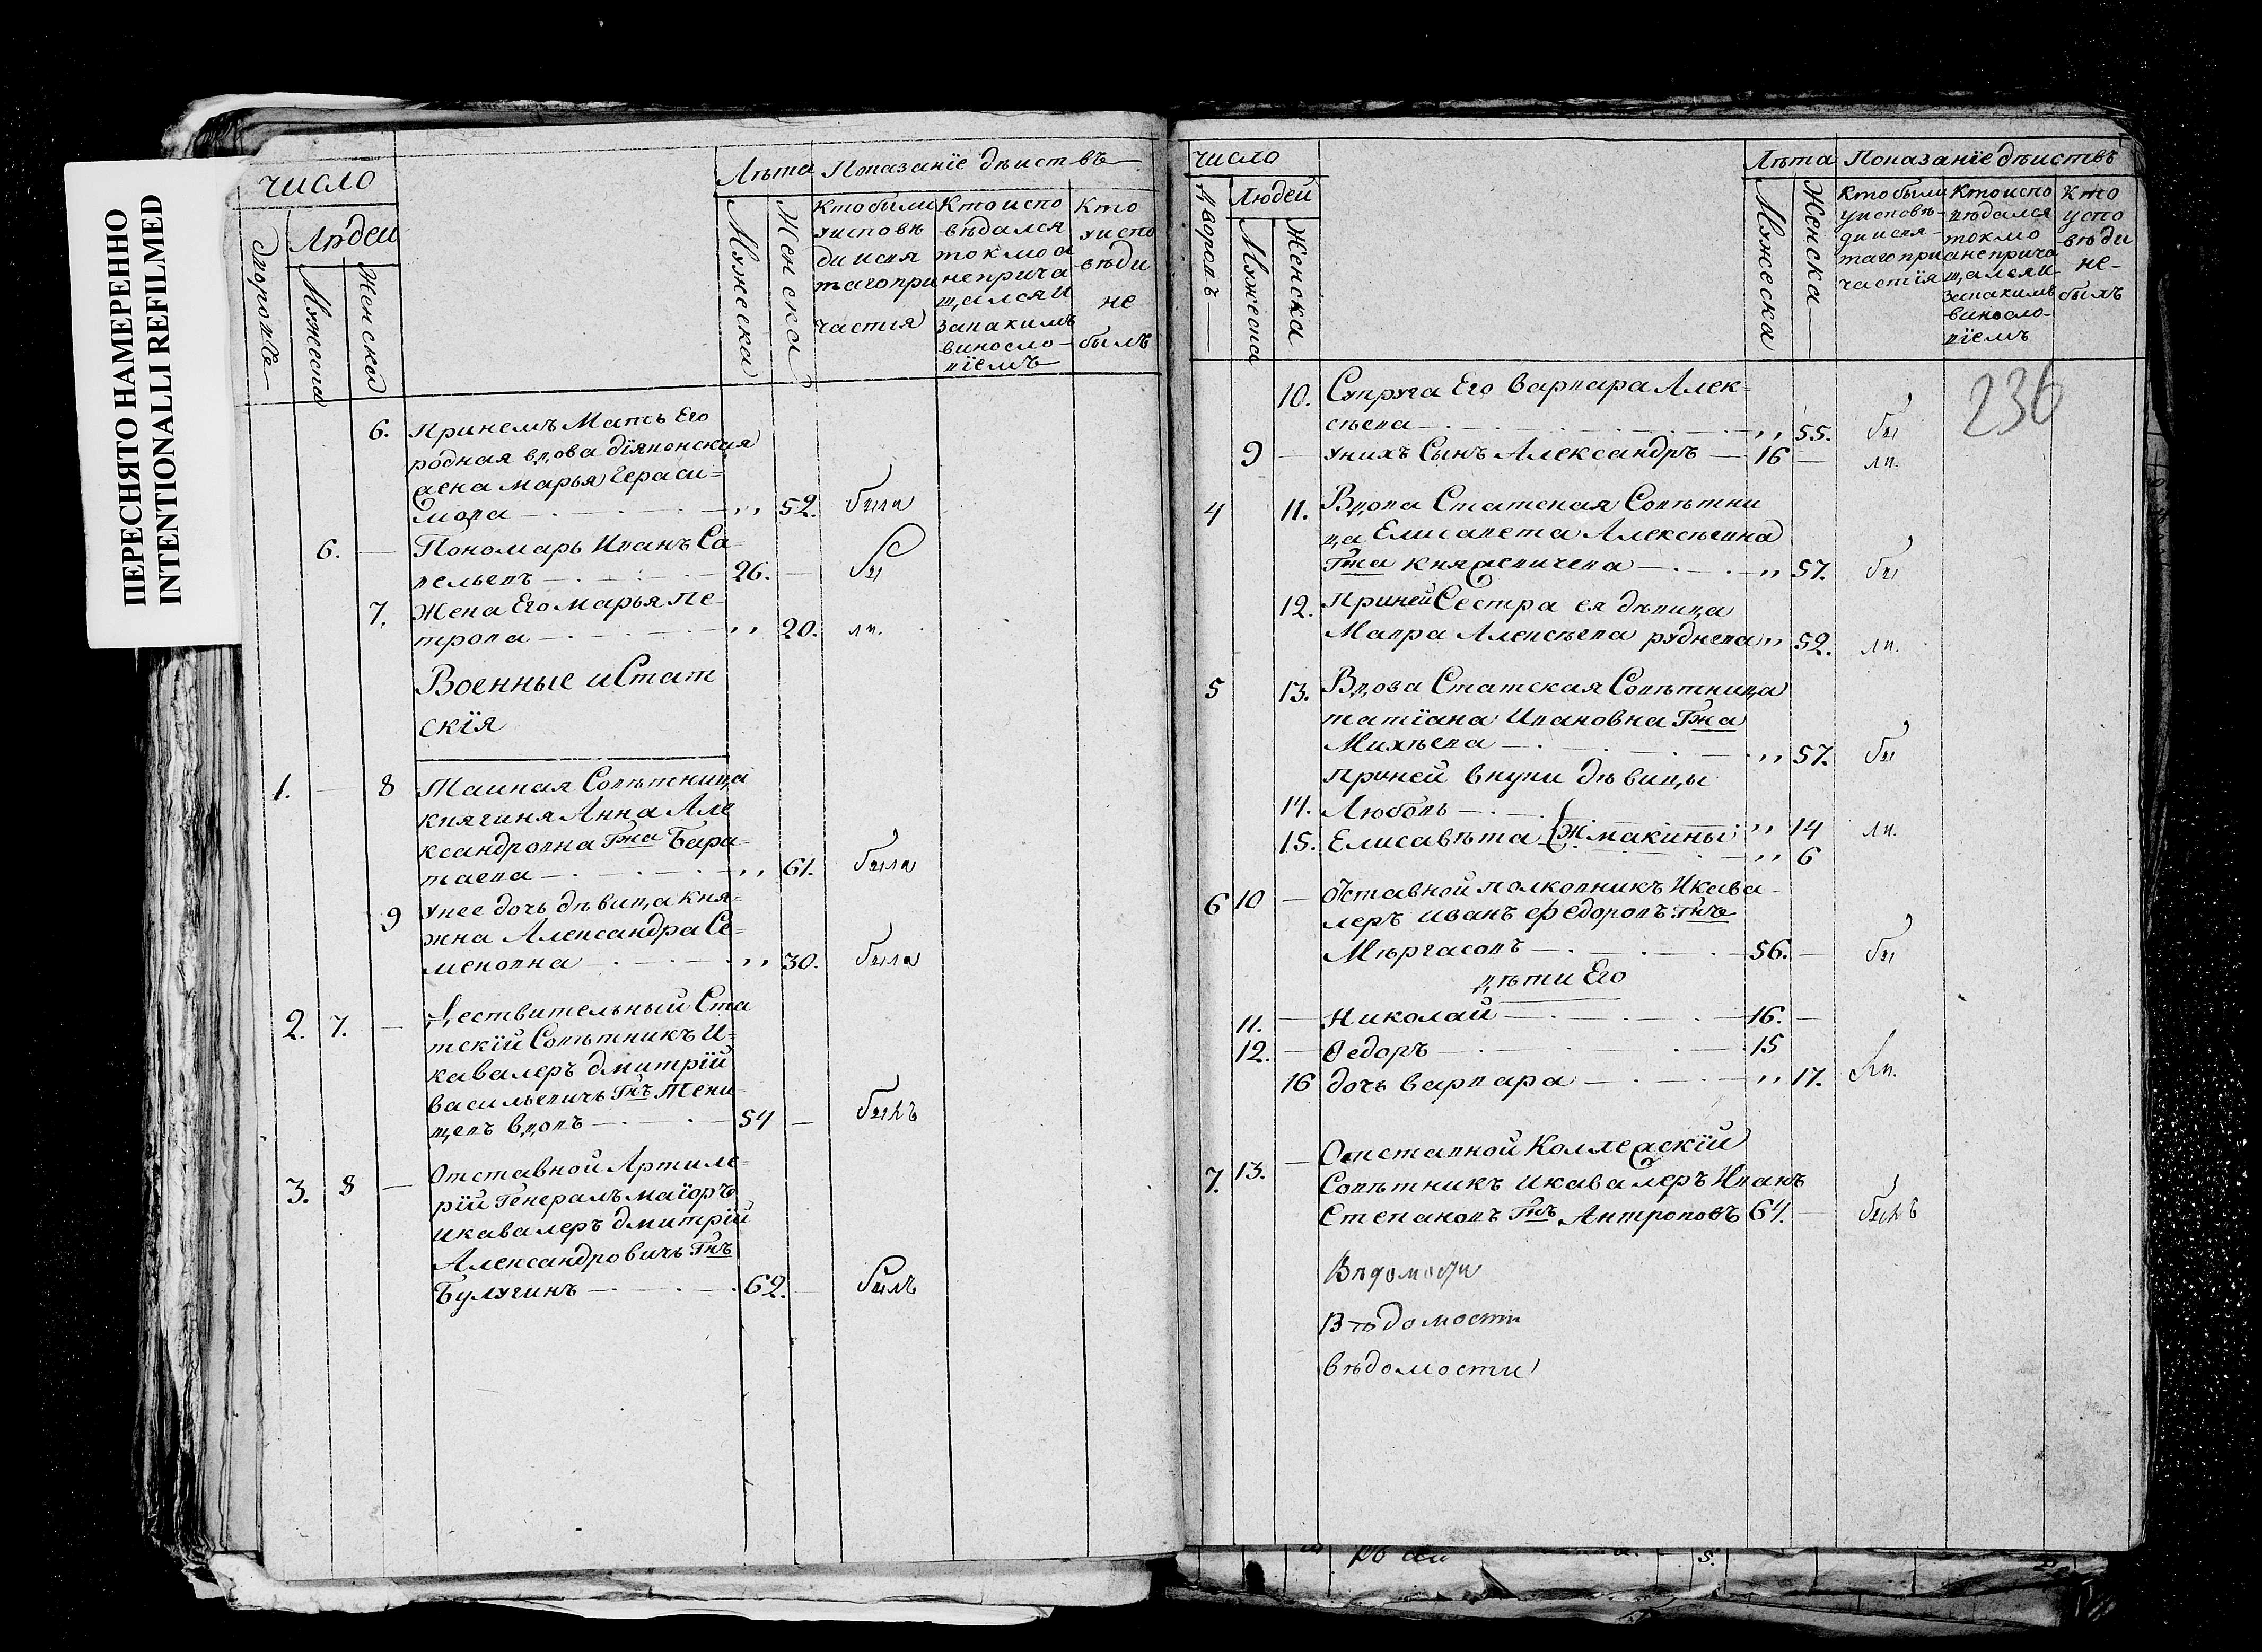 ПЕРЕСНЯТО НАМЕРЕННО
INTENTIONALLI REFILMED
число
Лѣта Показанїе дѣиствъ
Людеи
Мужеска
Женска
Мужеска
Женска
Кто были
уисповѣ
ди исвя
таго при
частїя
Кто испо
вѣдался
токмо а
не прича
щался и
за какимъ
виносло
вїемъ
Кто
у испо
вѣди
не
былъ
6. Принемъ Мать Его
родная вдова дїяконская
жена Марья Гераси=
мова ,, 52. была
6. Пономарь Иванъ Са=
вельевъ 26. бы
7. Жена Его Марья Пе
трова ,, 20. ли.
Военные и Стат
скїя
1. 8 Таиная Совѣтница
княгиня Анна Але
ксандровна Гжа Бара=
таева ,, 61. была
9 Унее дочь дѣвица кня=
жна Александра Се=
меновна ,, 30. была
2. 7. Дествительный Ста
тскїй Совѣтникъ И=
кавалеръ дмитрїй
васильевичь Гнъ Тени
щевъ вдовъ 54 былъ
3. 8 Отставной Артиле=
рїй Генералъ маїоръ
икавалеръ дмитрїй
Александровичь Гнъ
Булугинъ 62. былъ
число
Лѣта Показанїе дѣиствъ
Дворовъ
Людей
Мужеска
Женска
Мужеска
Женска
Кто были
уисповѣ
ди исвя
таго при
частїя
Кто испо
вѣдался
токмо
а не прича
щался и
за какимъ
виносло
вїемъ
Кто
у испо
вѣди
не
былъ
236
10. Супруга Его Варвара Алек=
сѣева ,, 55. бы
9 Унихъ Сынъ Александръ 16 ли.
4 11. Вдова Статская Совѣтни
ца Елисавета Алексѣевна
Гжа Княжевичева ,, 57. бы
12. Приней Сестра ея дѣвица
Мавра Алексѣева руднева ,, 52. ли.
5 13. Вдова Статская Совѣтница
татїана Ивановна Гжа
Михѣева ,, 57. бы
Приней внуки дѣвицы
14. Любовь
15. Елисавѣта Жмакины ,, 14 ли.
,, 6
6 10 Отставной полковникъ Икава
леръ иванъ Федоровъ Гнъ
Мѣргасовъ 56. бы
дѣти Его
11. Николай 16.
12. Ѳедоръ 15
16 дочь варвара ,, 17. ли.
7. 13. Отставной Коллежскїй
Совѣтникъ икавалеръ Иванъ
Степановъ Гнъ Антроповъ 64. былъ
Вѣдомости
Вѣдомости
вѣдомости